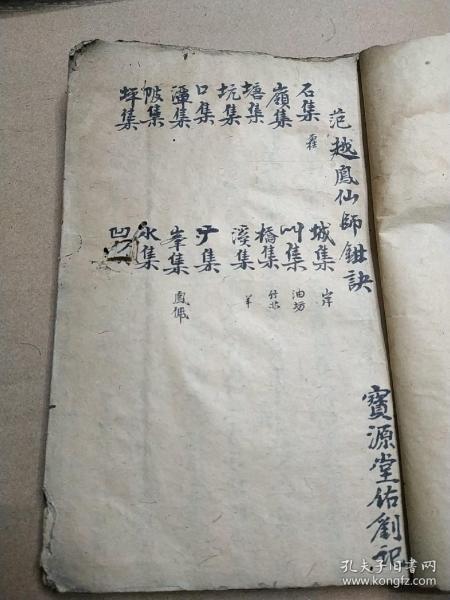 范越鳳仙師鉗訣
石集
嶺集
塘集
坑集
口集
潭集
陂集
坪集
城集 岸
圳集 油坊
橋集
溪集 羊
子集
峯集 鳳儀
水集
凹
寶源堂佑創記
孔夫子旧书网
www.kongfz.com